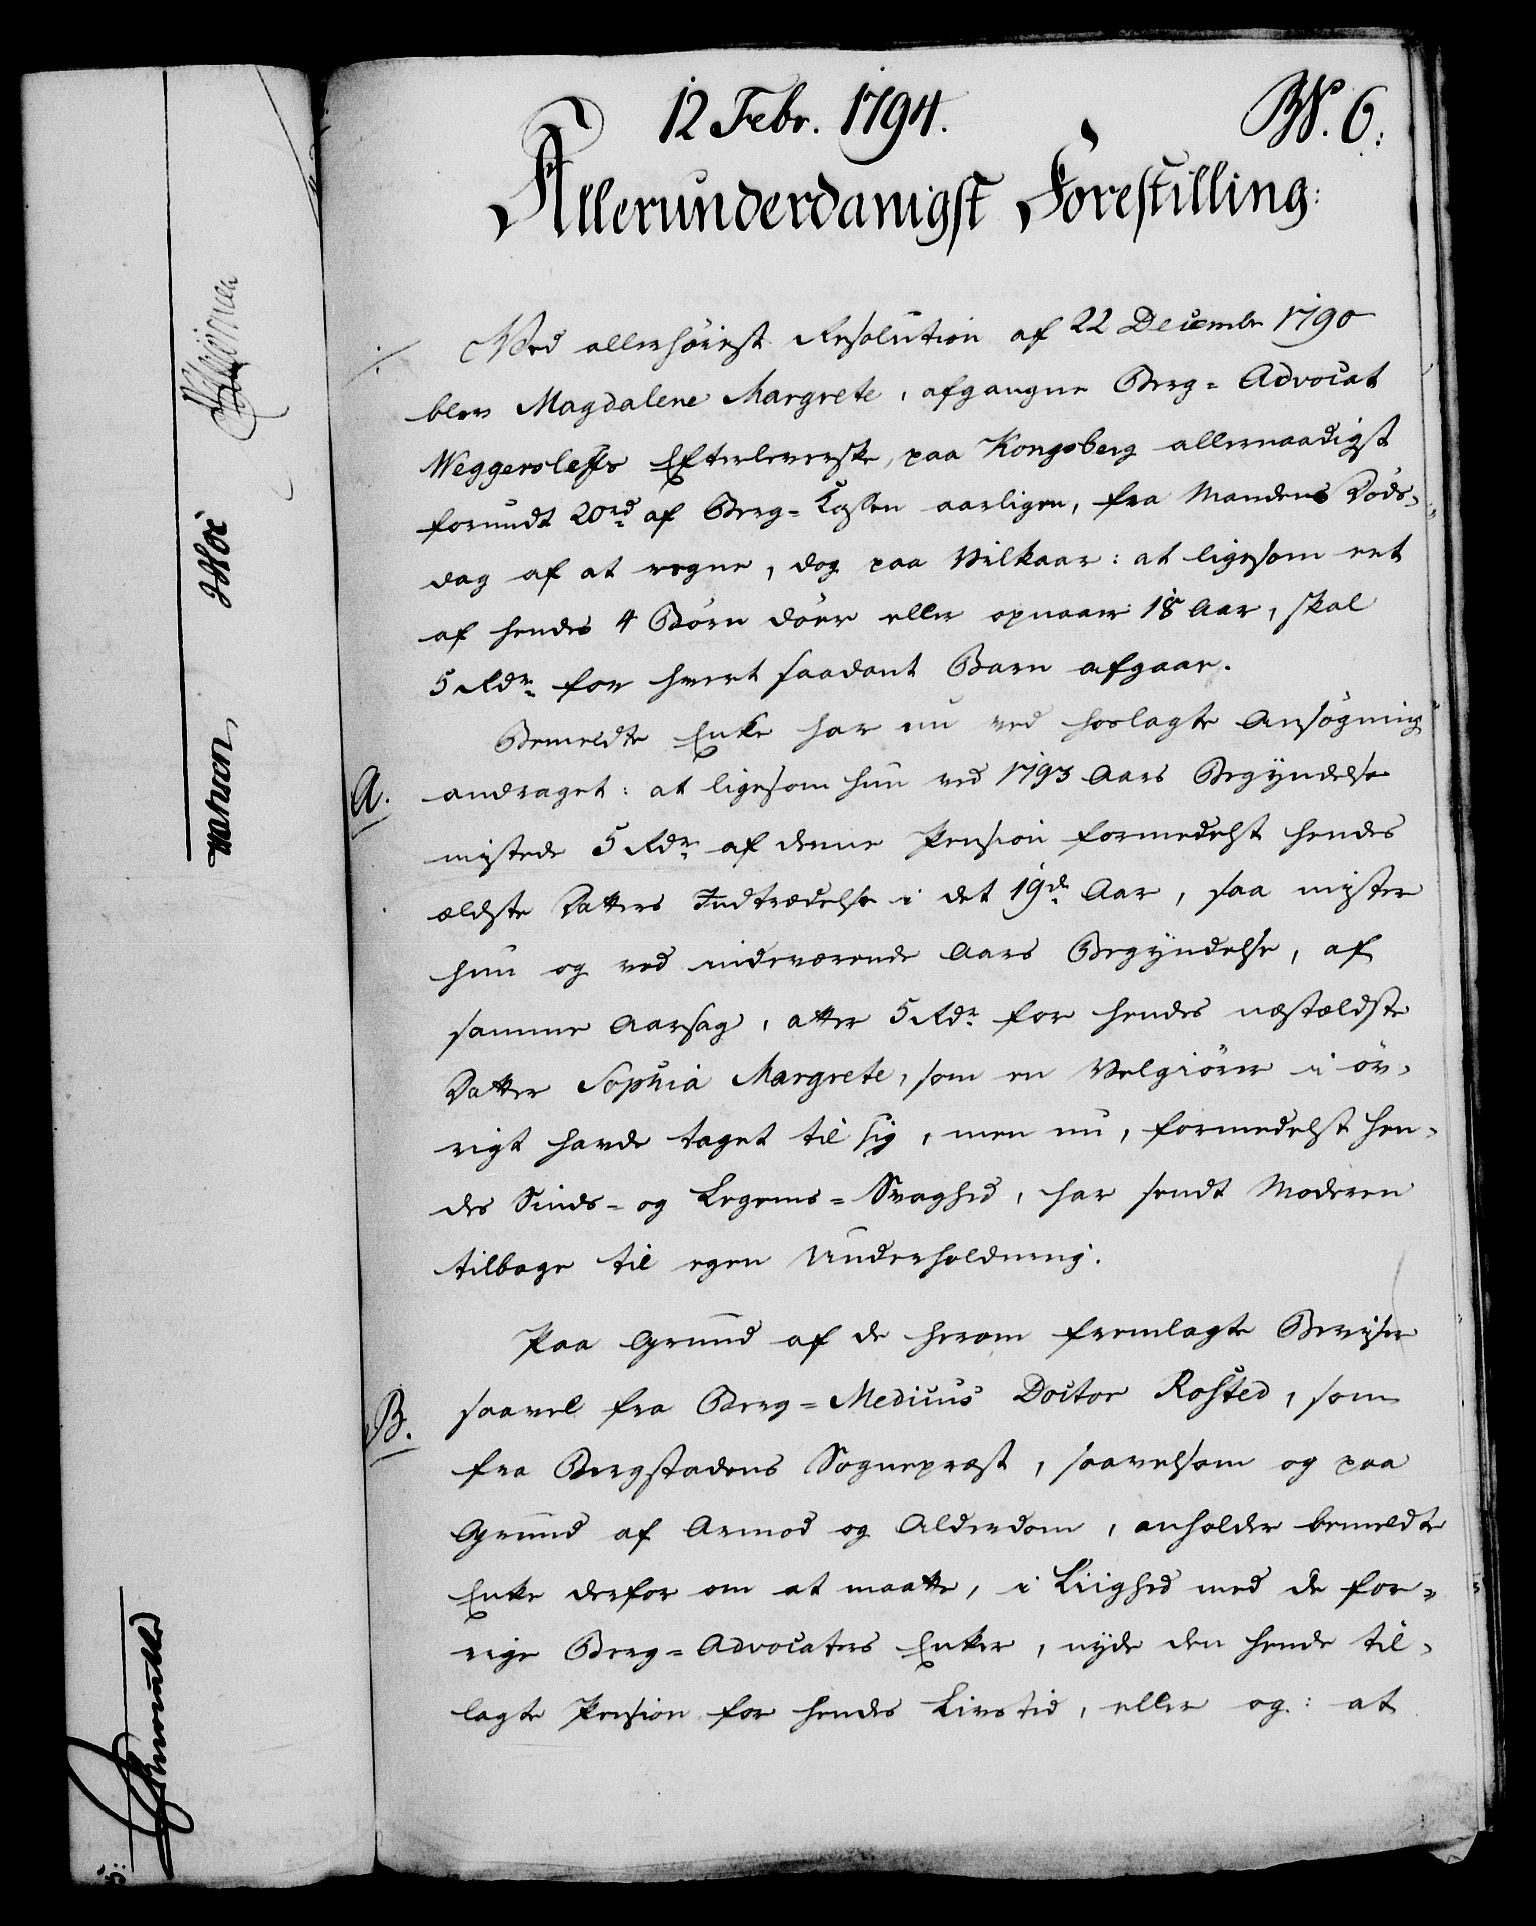 12 Febr. 1794.
No. 6.
Allerunderdanigst Forestilling:
Ved allerhöiest Resolution af 22 Decembr 1790
blev Magdalene Margrete, afgangne Berg-Advocat
Weggersleffs Efterleverske, paa Kongsberg allernaadigst
forundt 20rd af Berg-Cassen aarligen, fra Mandens Döds-
dag af at regne, dog paa Vilkaar: at ligesom eet
af hendes 4 Börn döer eller opnaaer 18 Aar, skal
5 Rdr for hvert saadant Barn afgaae.
Bemeldte Enke har nu ved hoslagte Ansögning
A.
andraget: at ligesom hun ved 1793 Aars Begyndelse
mistede 5 Rdr af denne Pension formedelst hendes
ældste Datters Indtrædelse i det 19de Aar, saa mister
hun og ved indeværende Aars Begyndelse, af
samme Aarsag, atter 5 Rdr for hendes næstældste
Datter Sophia Margrete, som en Velgiörer i öv-
rigt havde taget til sig, men nu, formedelst hen-
des Sinds- og Legems-Svaghed, har sendt Moderen
tilbage til egen Underholdning.
Paa Grund af de herom fremlagte Beviser
B.
saavel fra Berg-Medicus Doctor Rosted, som
fra Bergstadens Sognepræst, saavelsom og paa
Grund af Armod og Alderdom, anholder bemeldte
Enke derfor om at maatte, i Liighed med de for-
rige Berg-Advocaters Enker, nyde den hende til-
lagte Pension for hendes Livstid, eller og: at